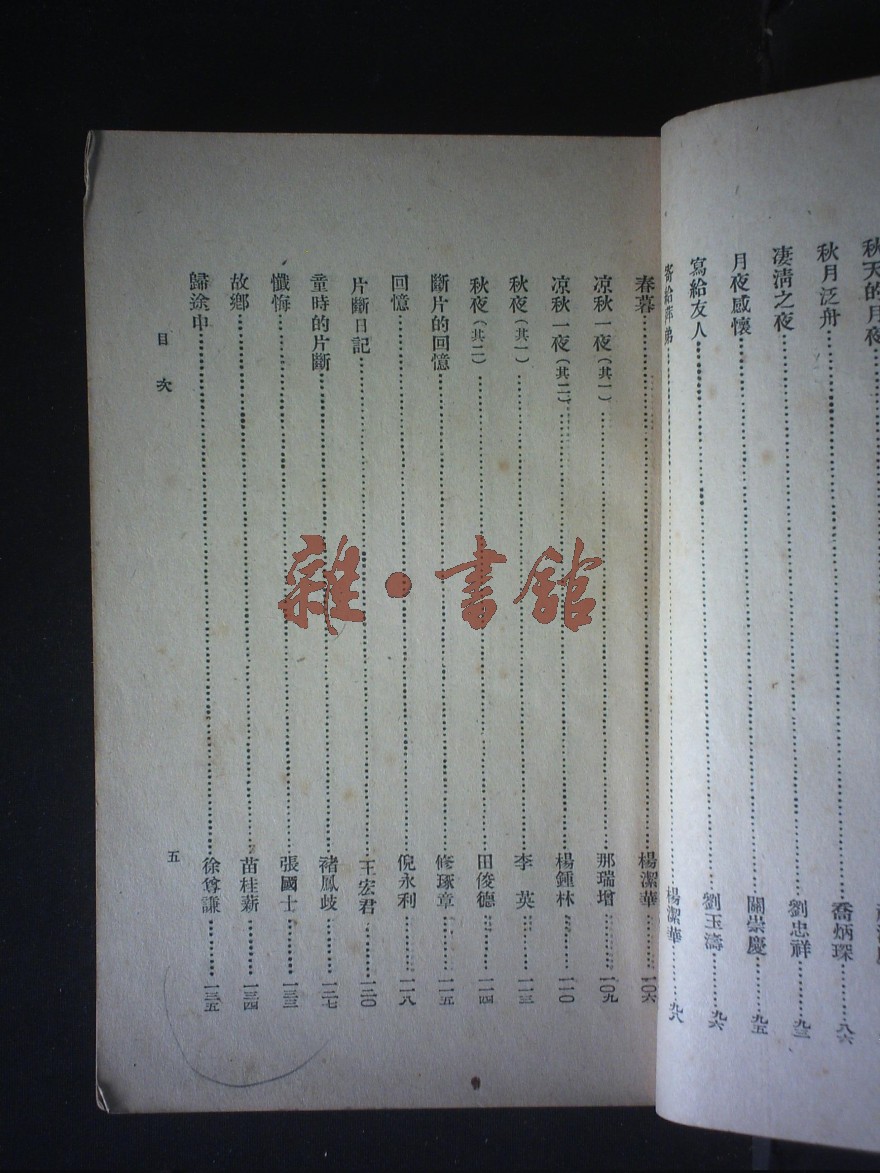 秋天的月夜
秋月泛舟………喬炳琛………八六
淒清之夜………劉忠祥………九三
月夜感懷………關崇慶………九五
寫給友人………劉玉濤………九六
寄給萍弟………楊潔華………九八
春暮………楊潔華………一〇六
凉秋一夜（其一）………那瑞增………一〇九
凉秋一夜（其二）………楊鍾林………一一〇
秋夜（其一）………李英………一一三
秋夜（其二）………田俊德………一一四
斷片的回憶………修琢章………一一五
回憶………倪永利………一一八
片斷日記………王宏君………一二〇
童時的片斷………禇鳳歧………一二七
懺悔………張國士………一三三
故鄉………苗桂薪………一三四
歸途中………徐尊謙………一三五
目次
五
雜·書館